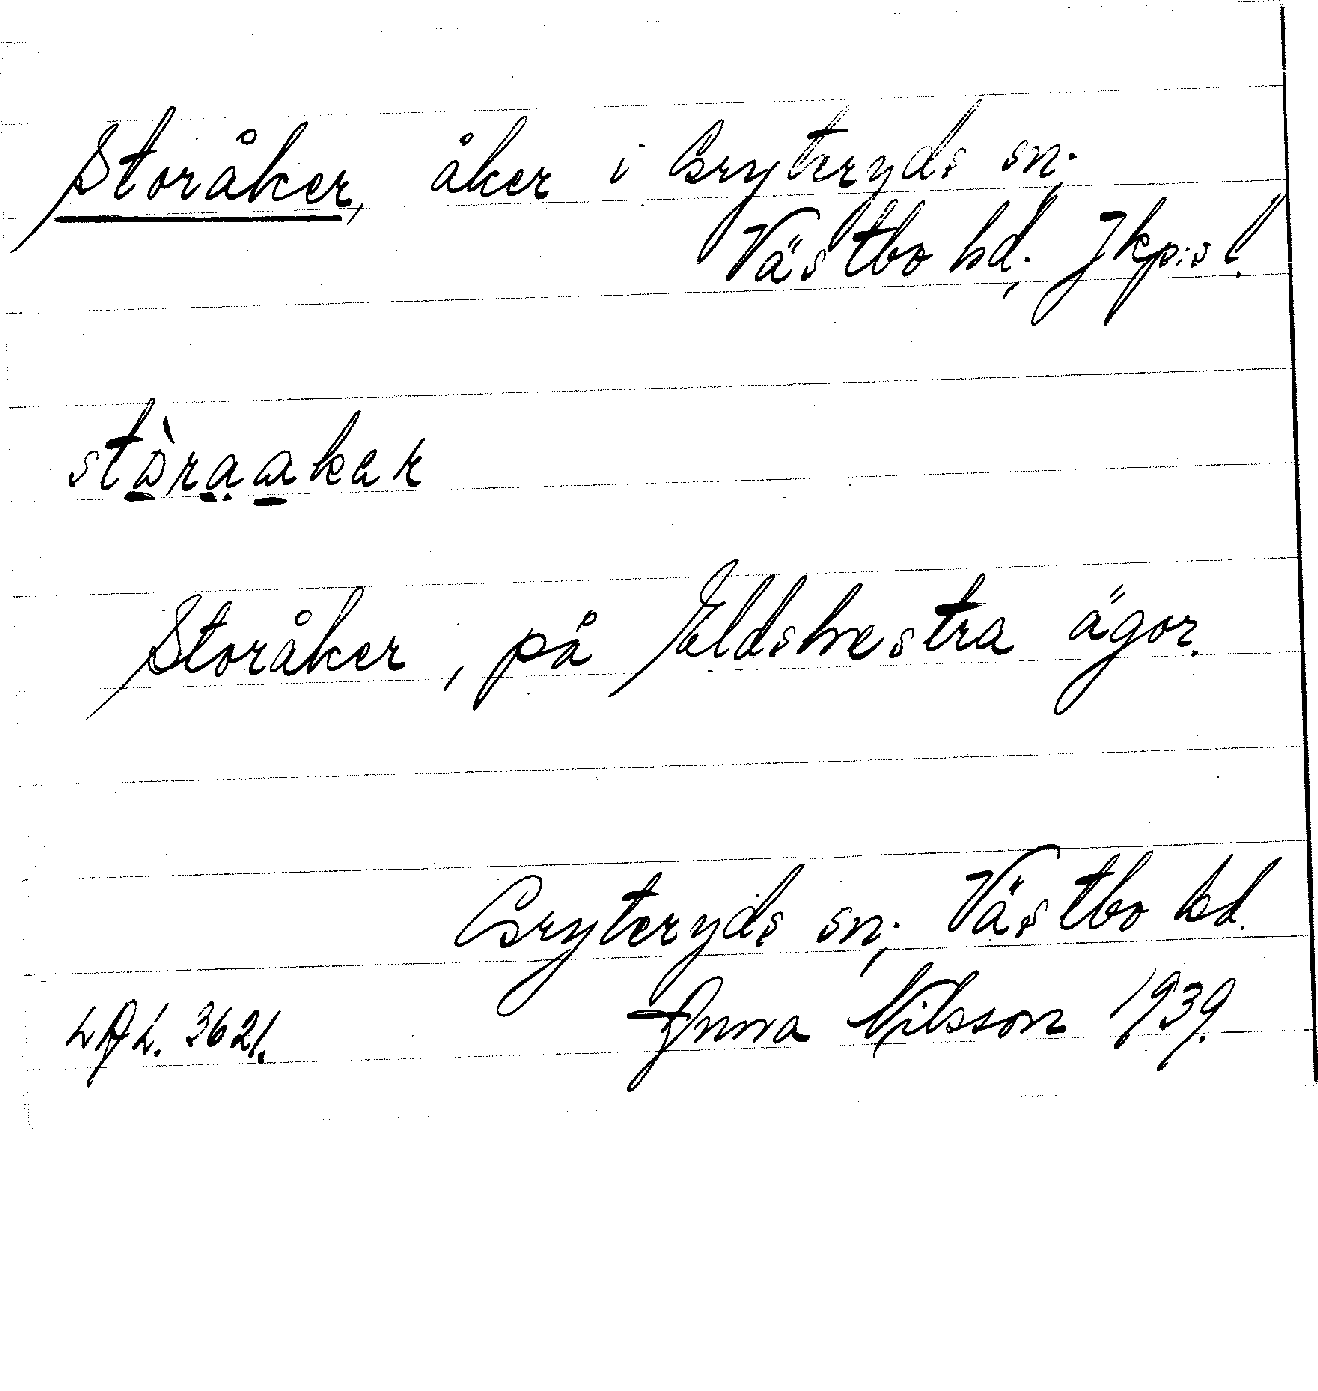 Storåker, åker i Gryteryds sn;
Västbo hd; Jkp:s l.
Storåker, på Eldshestra ägor.
Gryteryds sn; Västbo hd.
LAL. 3621. Anna Nilsson 1939.